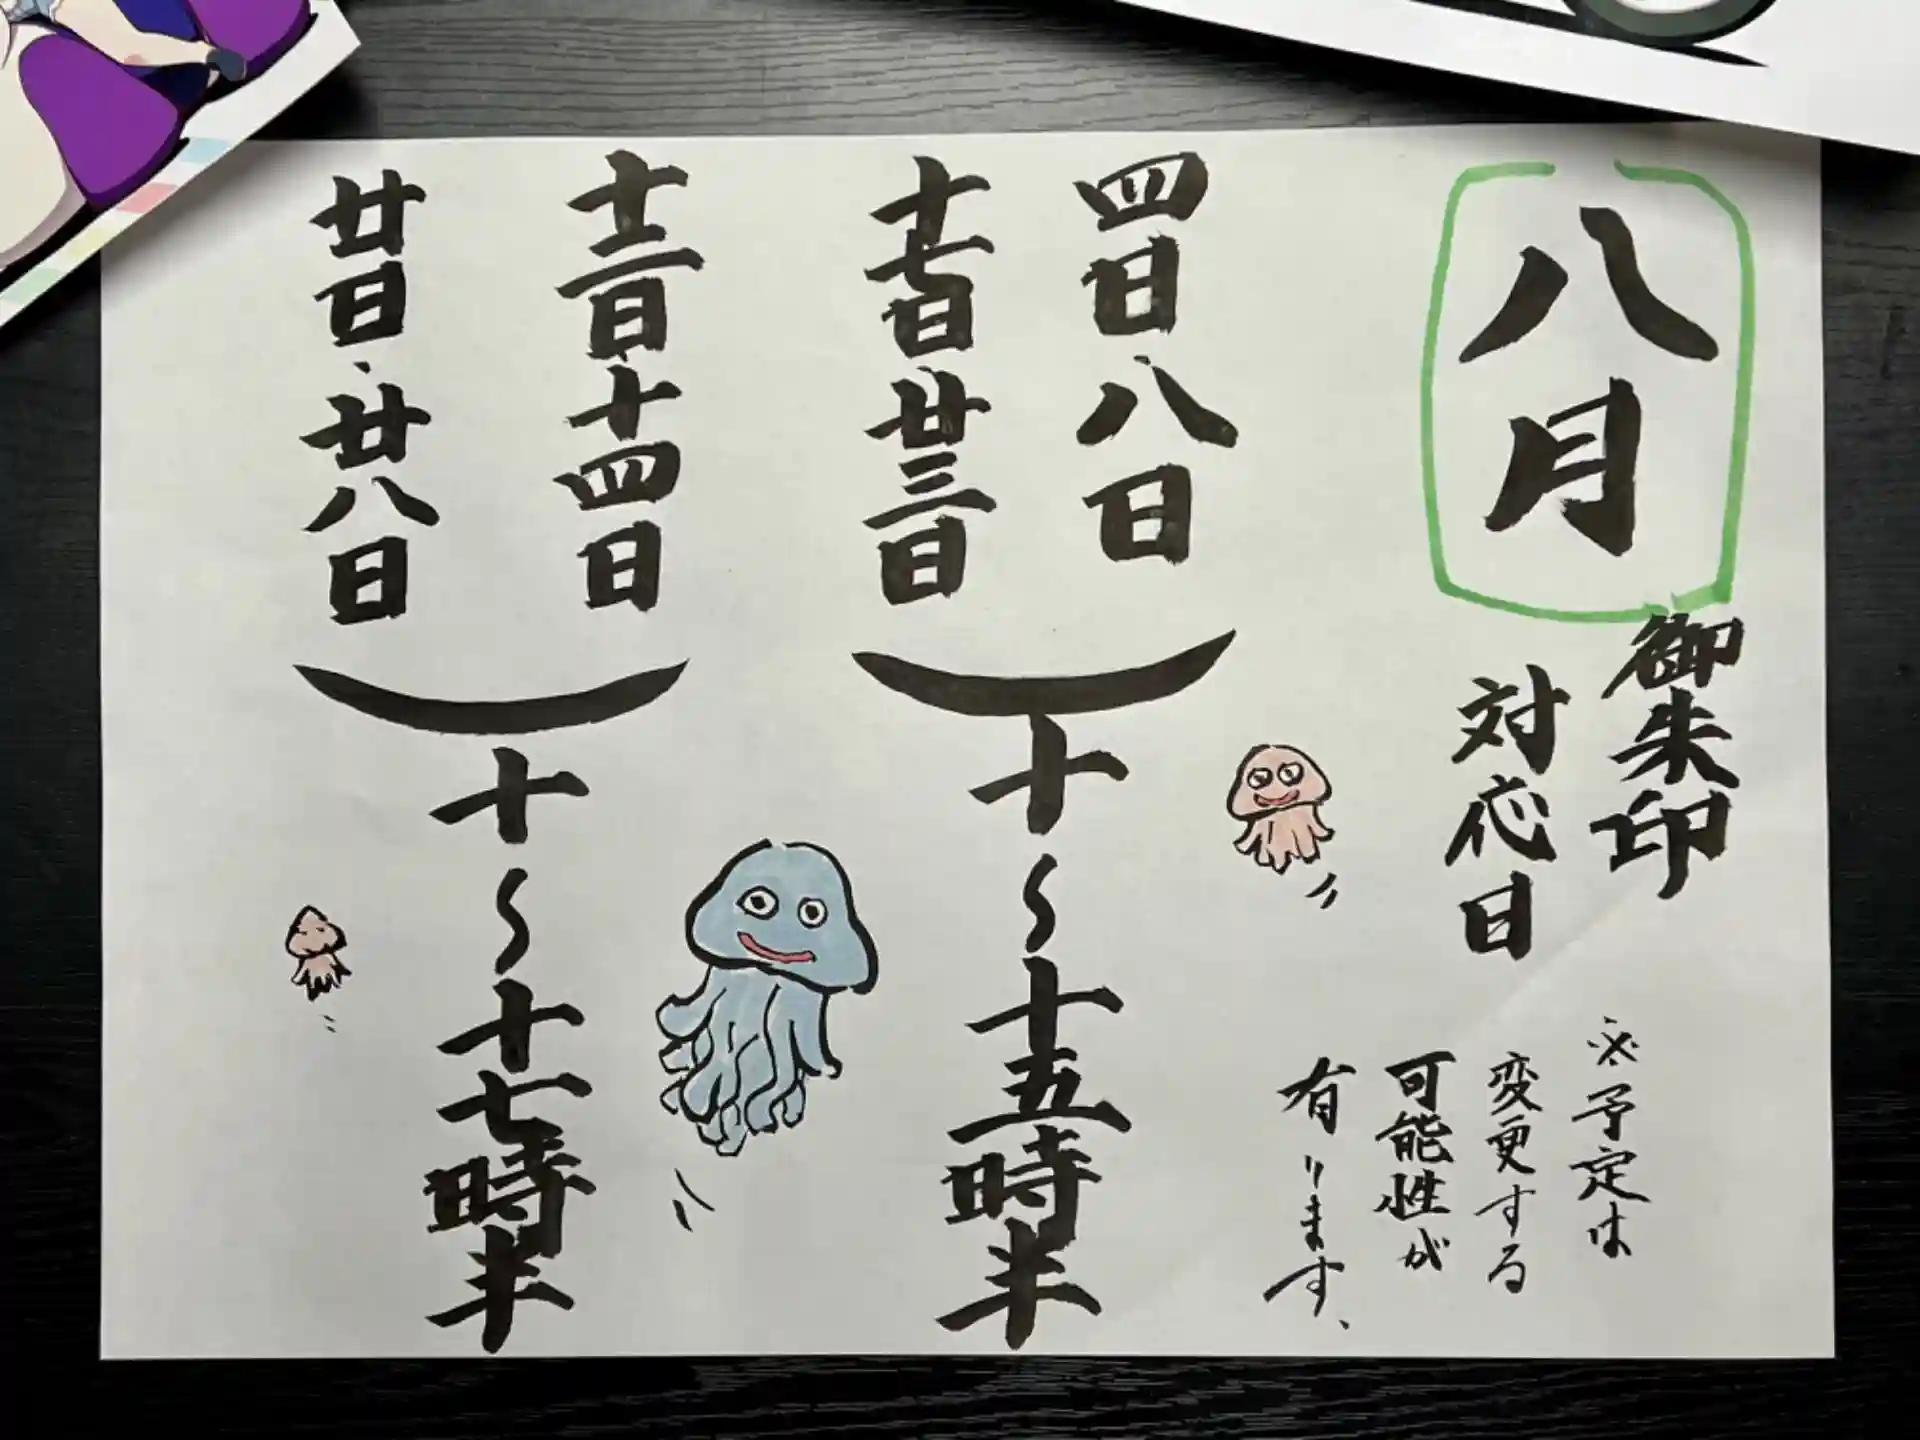 八月
御朱印
対応日
※予定は
変更する
可能性が
有ります、
四日、八日
十七日、廿三日
十〜十五時半
十二日、十四日
廿日、廿八日
十〜十七時半